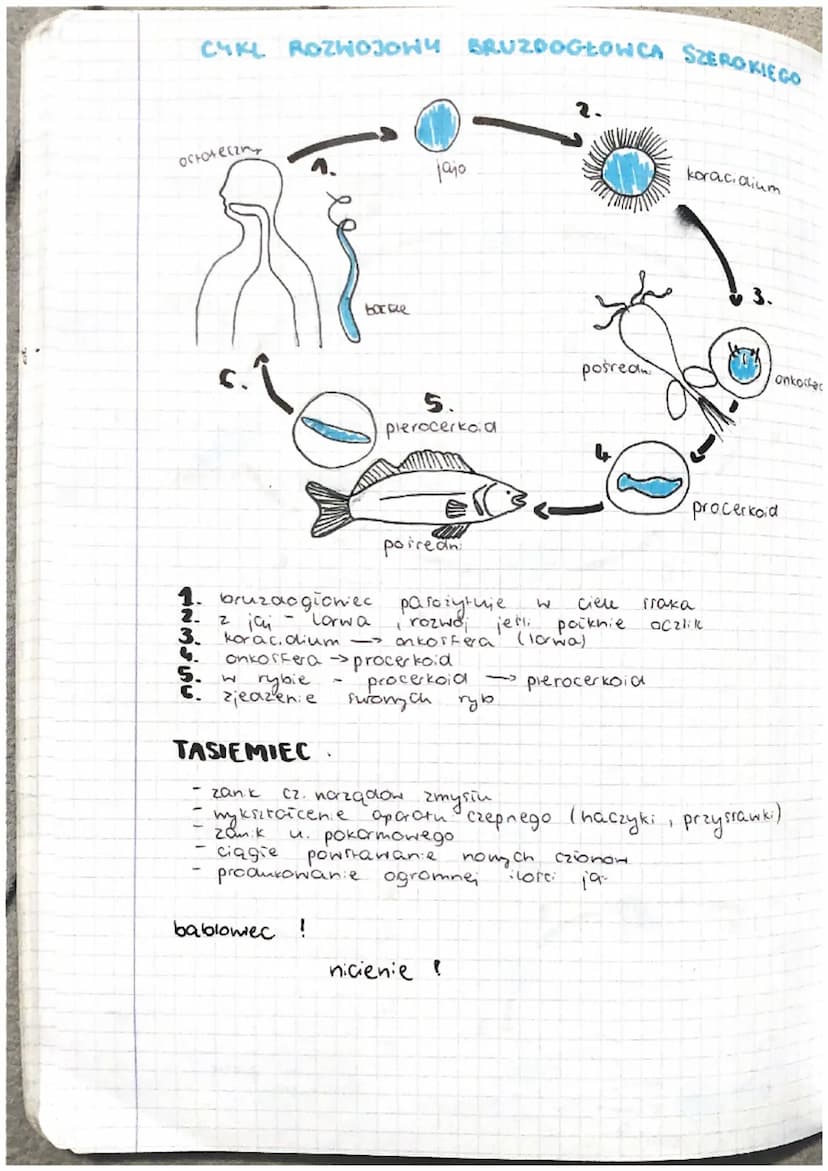 CYKL ROZWOJOWY BRUZDOGŁOWCA SZEROKIEGO
2.
ostateczny
1.
jajo
koracidium
3.
pośredni
onkosfe
6.
5.
plerocerkoid
4
procerkoid
pośredni
1. bruzdogłowiec pasożytuje w ciele ssaka
2. z jaj - larwa, rozwój jeśli połknie oczlik
3. koracidium → onkosfera (larwa)
4. onkosfera → procerkoid
5. w rybie - procerkoid → plerocerkoid
6. zjedzenie surowych ryb
TASIEMIEC.
- zanik cz. narządów zmysłu
- wykształcenie aparatu czepnego (haczyki, przyssawki)
- zanik u. pokarmowego
- ciągłe powstawanie nowych członów
- produkowanie ogromnej ilości jaj
bąblowiec !
nicienie !